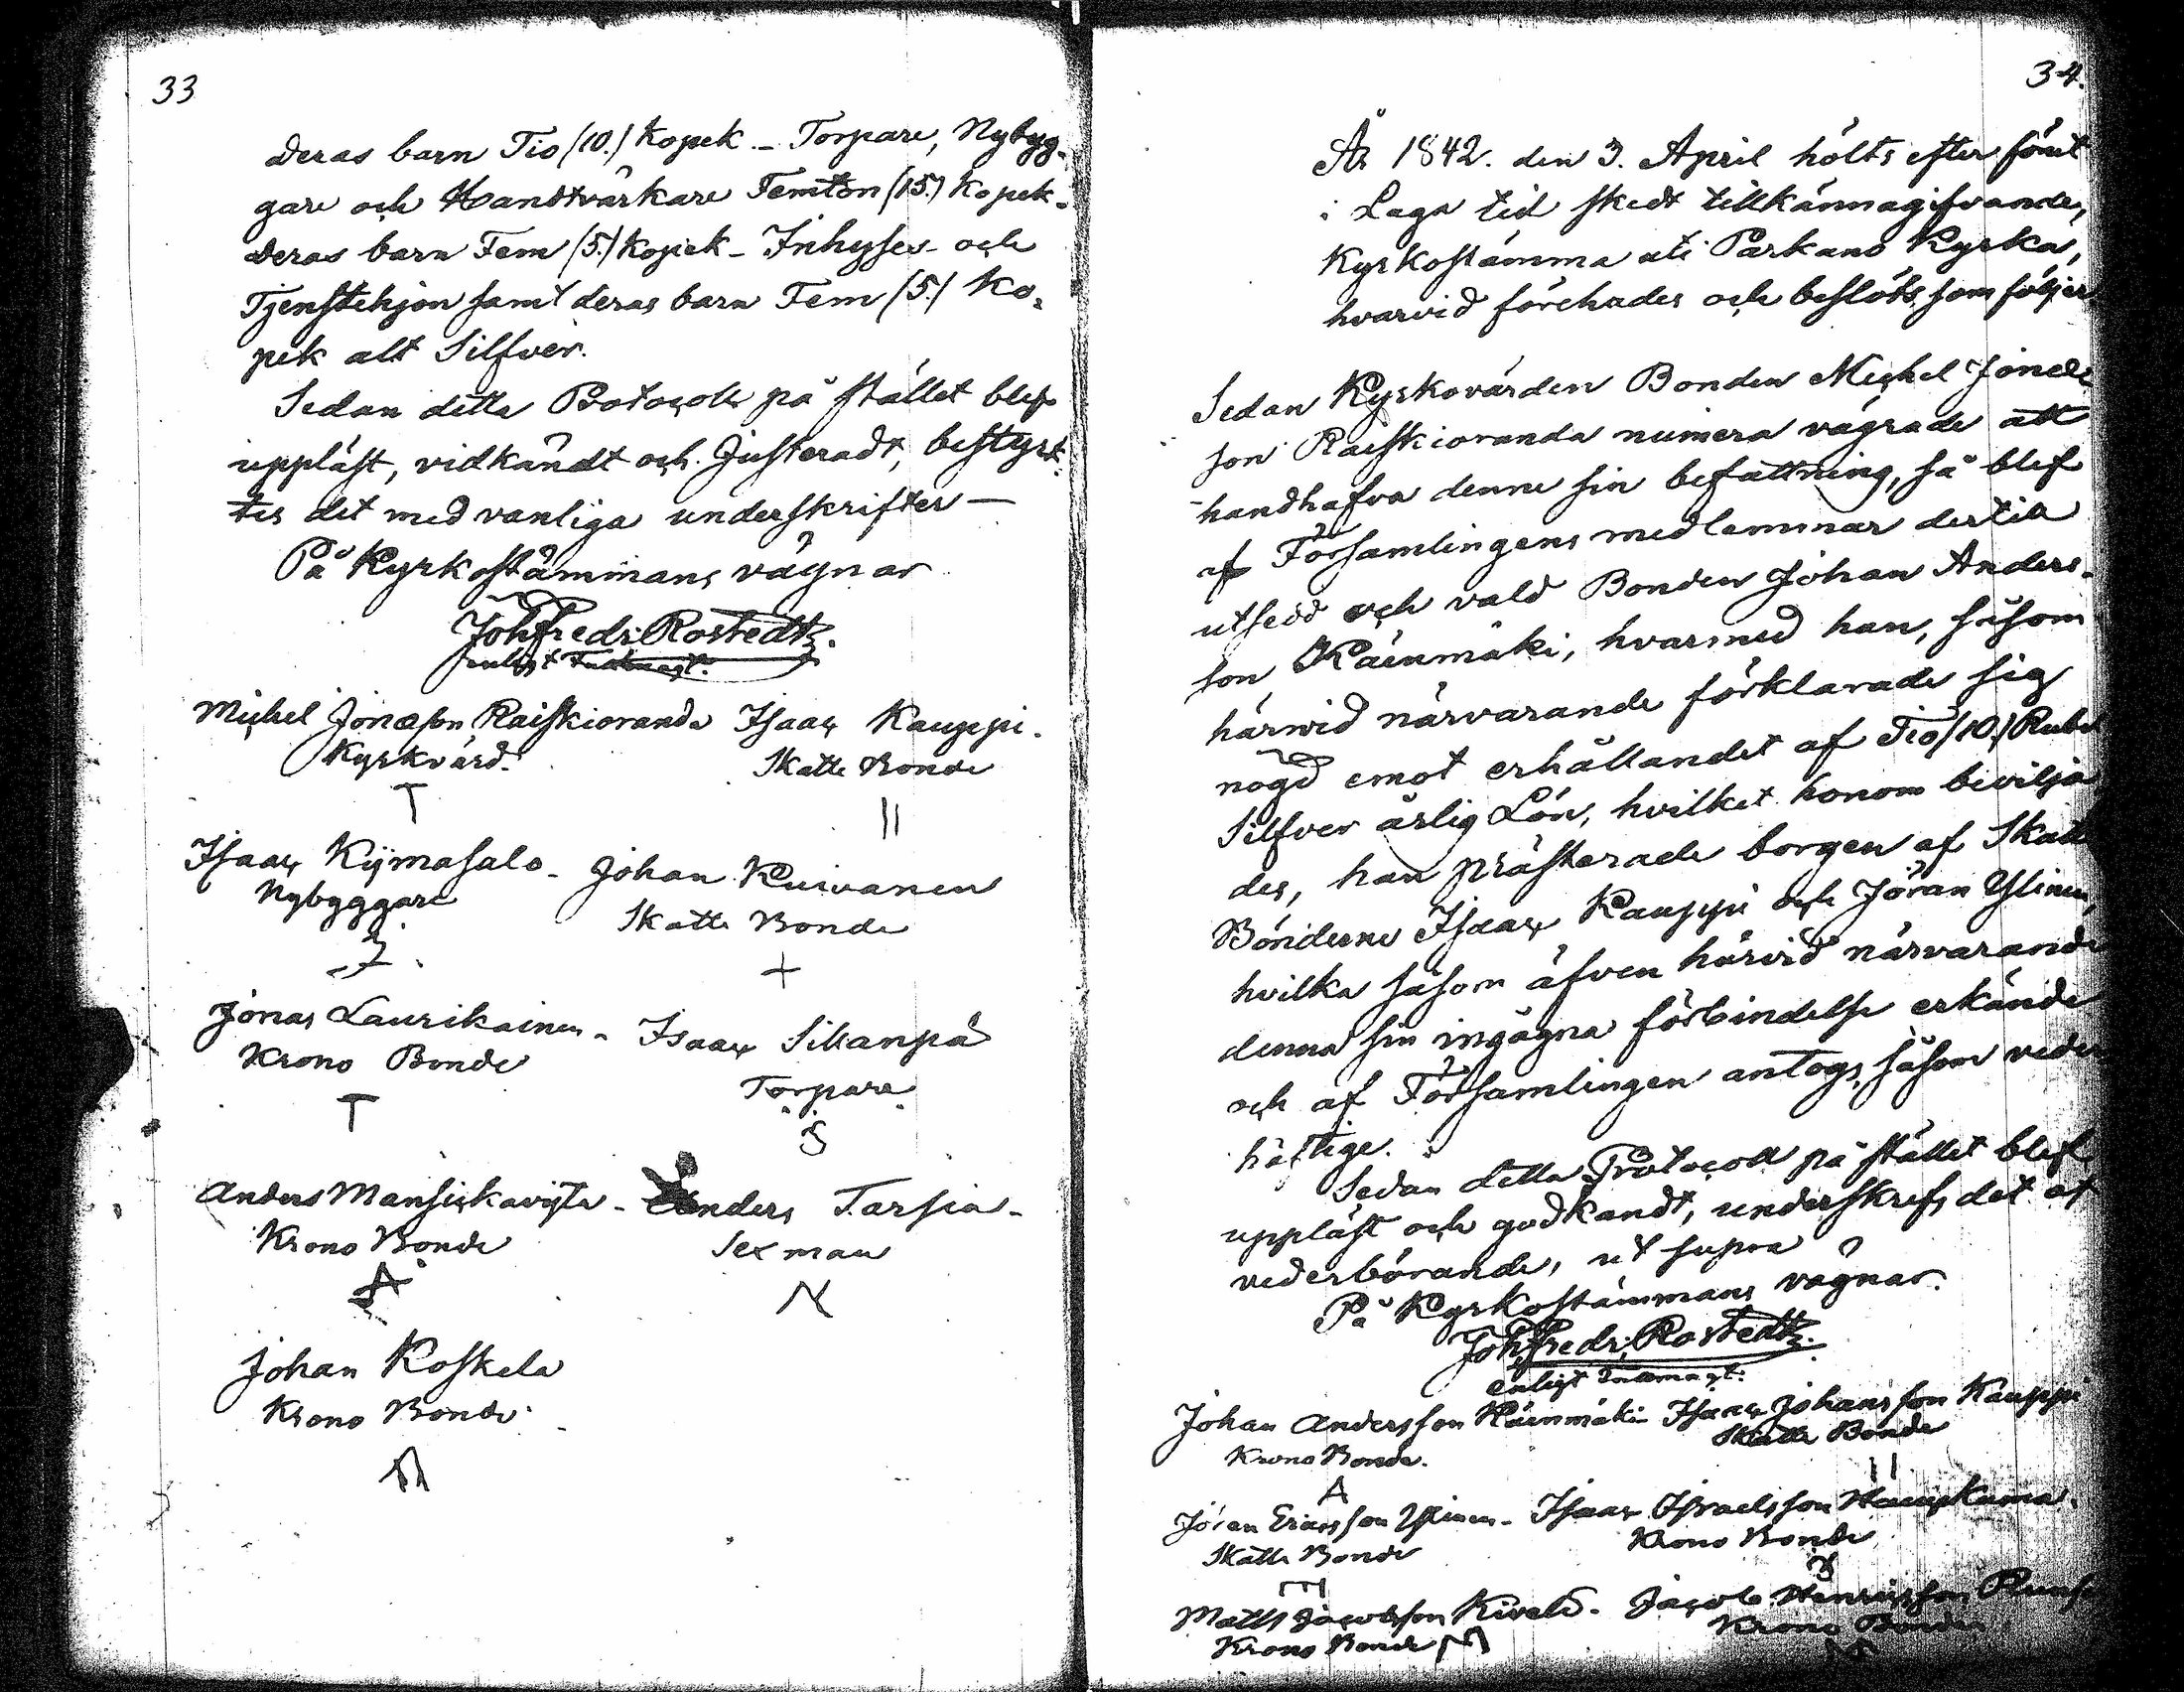 33
deras barn Tio (10.) Kopek - Torpare, Nybyg-
gare och Handtvärkare Femton (15.) Kopek-
deras barn Fem (5.) Kopek - Inhyses- och
Tjenstehjon samt deras barn Fem (5.) Ko-
pek alt Silfver.
Sedan detta Protocoll på stället blef
uppläst, vidkändt och Justeradt, bestyrk-
tes det med vanliga underskrifter -
På Kyrkostämmans vägnar
Joh Fredr: Rostedt.
enligt Fullmagt.
Michel Jonasson Raiskioranda Isaac Kauppi.
Kyrkvärd. Skatte Bonde
Isaac Kymasalo - Johan Kuivanen
Nybyggare Skatte Bonde
Jonas Laurikainen - Isaac Sillanpä
Krono Bonde Torpare
Anders Mansickaviita - Anders Tarsia -
Krono Bonde Sexman
Johan Koskela
Krono Bonde
34.
År 1842. den 3. April hölts efter förut
i Laga tid skedt tillkännagifvande,
Kyrkostämma uti Parkano Kyrka,
hvarvid förehades och beslöts, som följer
Sedan Kyrkovärden Bonden Michel Jonas
son Raiskioranda numera vägrade att
handhafva denne sin befattning, så blef
af Församlingens medlemmar dertill
utsedd och vald Bonden Johan Anders-
son Käenmäki, hvarmed han, såsom
härwid närvarande förklarade sig
nögd emot erhållandet af Tio (10.) Rubel
Silfver årlig Lön, hvilket honom bevilja
des, han præsterade borgen af Skatte
Bönderne Isaac Kauppi och Jöran Ylinen,
hvilka såsom äfven härvid närvarande
denna sin ingågna förbindelse erkände
och af Församlingen antogs, såsom veder
häftige.
Sedan detta Protocoll på stället blef
uppläst och godkandt, underskrefs det af
vederbörande, ut supra
På Kyrkostämmans vägnar.
Joh Fredr: Rostedt.
enligt Fullmagt.
Johan Andersson Käenmäki Isaac Johansson Kauppi
Krono Bonde. Skatte Bonde
Jöran Ericsson Ylinen - Isaac Israelsson
Skatte Bonde Krono Bonde
Matts Jacobsson Kivelä - Jacob Henricsson
Krono Bonde Krono Bonde